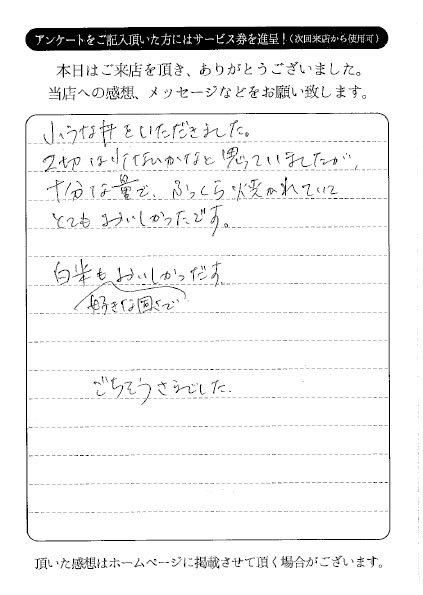 アンケートをご記入頂いた方にはサービス券を進呈！（次回来店から使用可）
本日はご来店を頂き、ありがとうございました。
当店への感想、メッセージなどをお願い致します。
小うな丼をいただきました。
2切は少ないかなと思っていましたが、
十分な量で、ふっくら焼かれていて
とてもおいしかったです。
白米もおいしかったです。
好きな固さで
ごちそうさまでした。
頂いた感想はホームページに掲載させて頂く場合がございます。